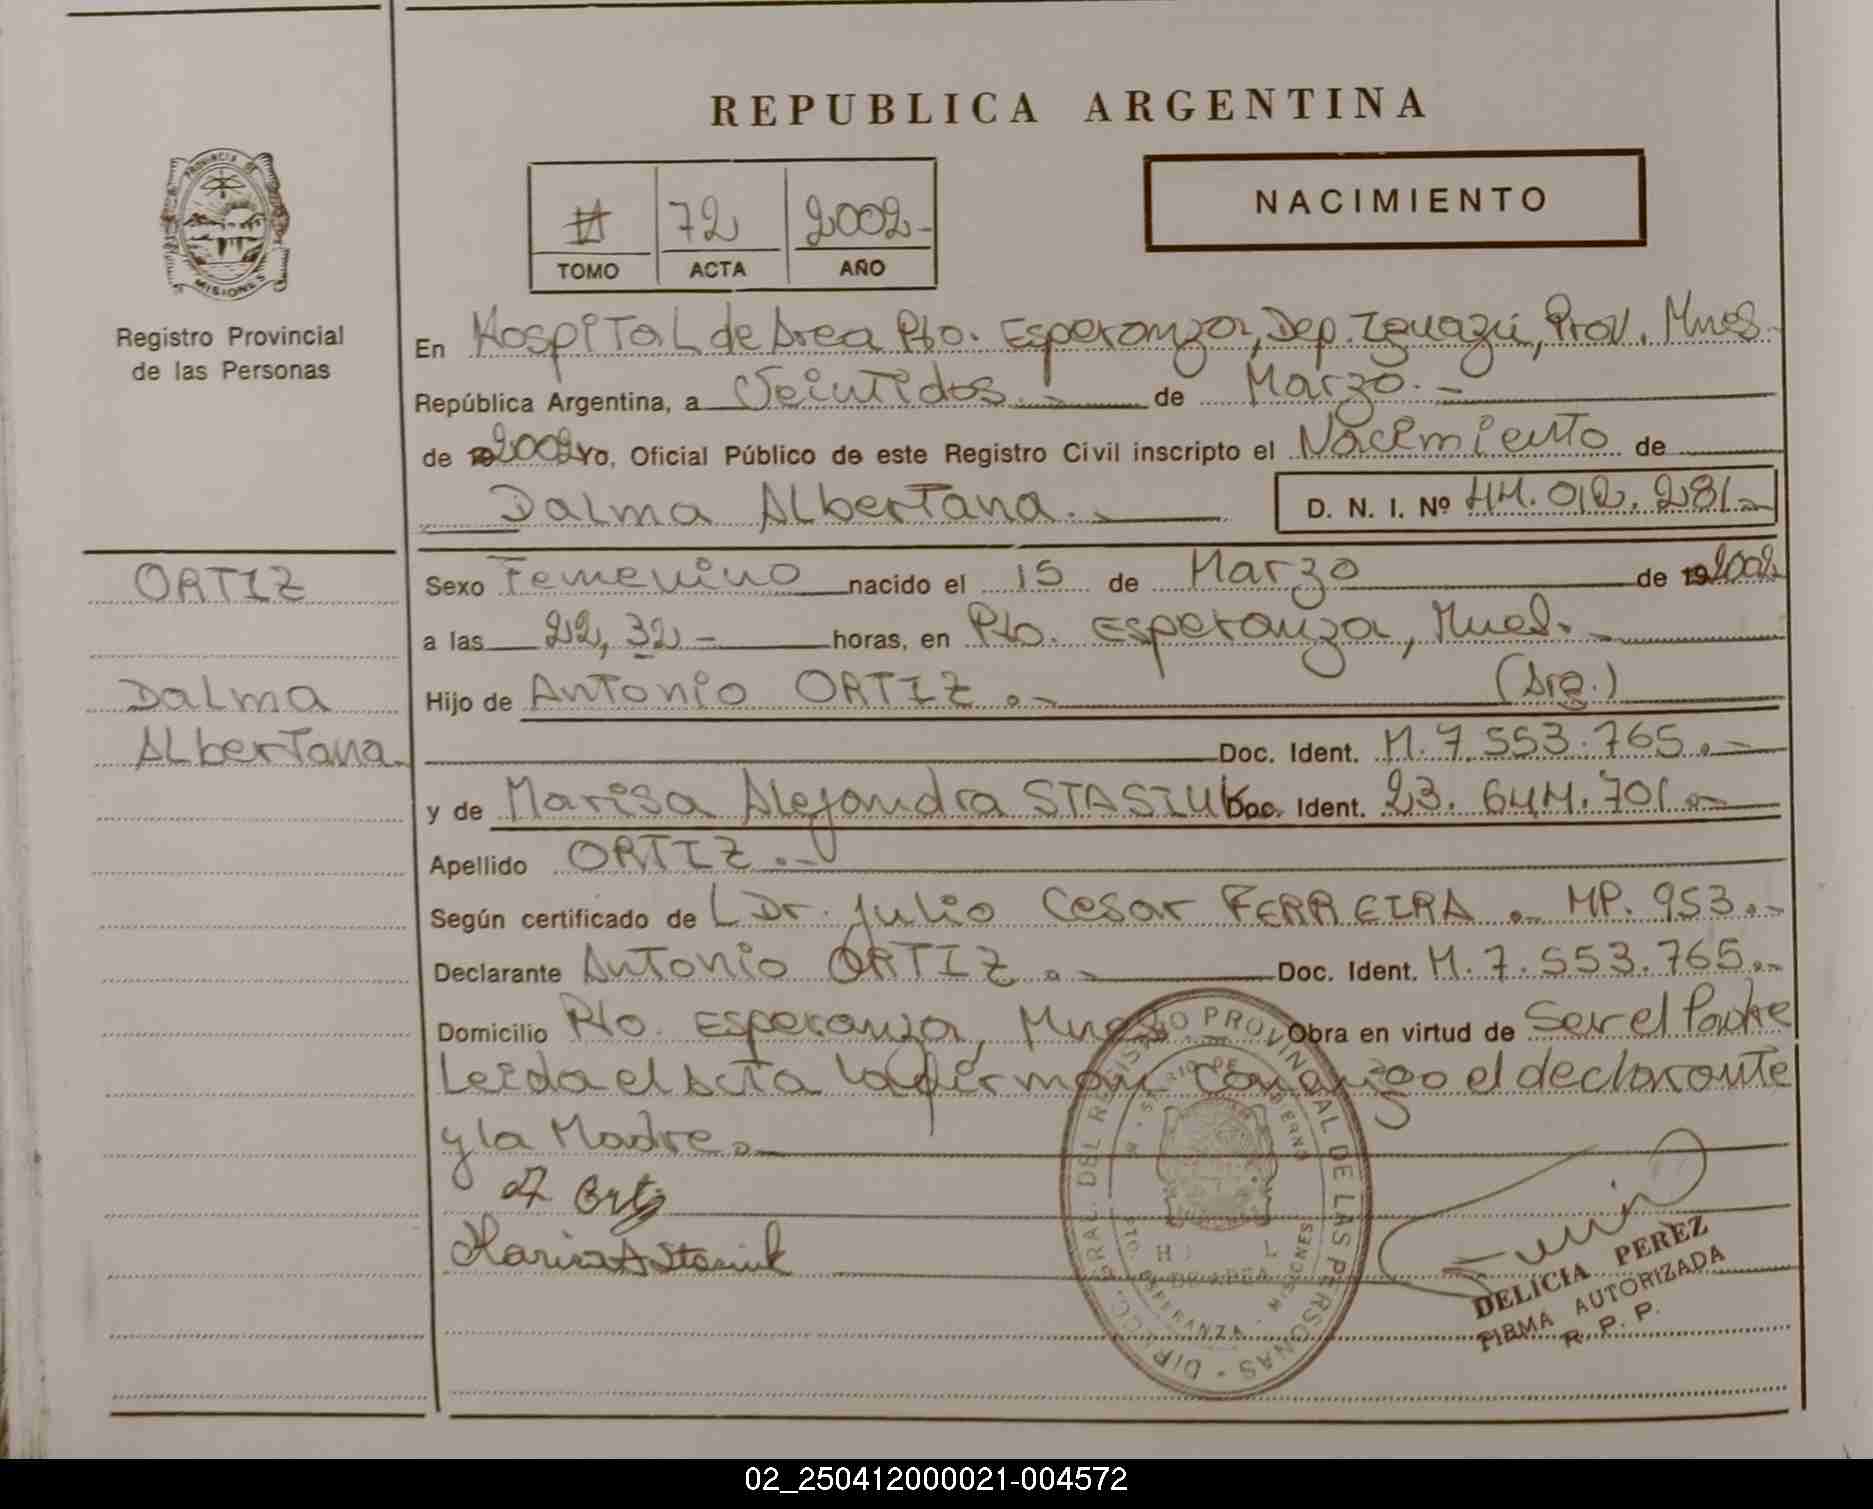 REPUBLICA ARGENTINA
NACIMIENTO
72 2002-
TOMO ACTA AÑO
PROVINCIA DE MISIONES
Registro Provincial
de las Personas
En Hospital de Area Pto. Esperanza, Dep. Iguazú, Prov. Mnes.
República Argentina, a Veintidos.- de Marzo.-
de 2002 Yo, Oficial Público de este Registro Civil inscripto el Nacimiento de
Dalma Albertana.- D. N. I. Nº 44.012.281.-
ORTIZ
Dalma
Albertana.
Sexo Femenino nacido el 15 de Marzo de 192002
a las 22,32- horas, en Pto. Esperanza, Mnes.-
Hijo de Antonio ORTIZ.- (Arg.)
Doc. Ident. M.7.553.765.-
y de Marisa Alejandra STASIUK Doc. Ident. 23.644.701.-
Apellido ORTIZ.-
Según certificado de L Dr. Julio Cesar FERREIRA.- MP. 953.-
Declarante Antonio ORTIZ.- Doc. Ident. M.7.553.765.-
Domicilio Pto. Esperanza, Mnes. Obra en virtud de Ser el Padre
Leida el acta la firman conmigo el declarante
y la Madre.-
A Ortiz
Marisa A Stasiuk
DIRECC. GRAL. DEL REGISTRO PROVINCIAL DE LAS PERSONAS
PTO. ESPERANZA - MISIONES
DELICIA PEREZ
FIRMA AUTORIZADA
R. P. P.
02_250412000021-004572